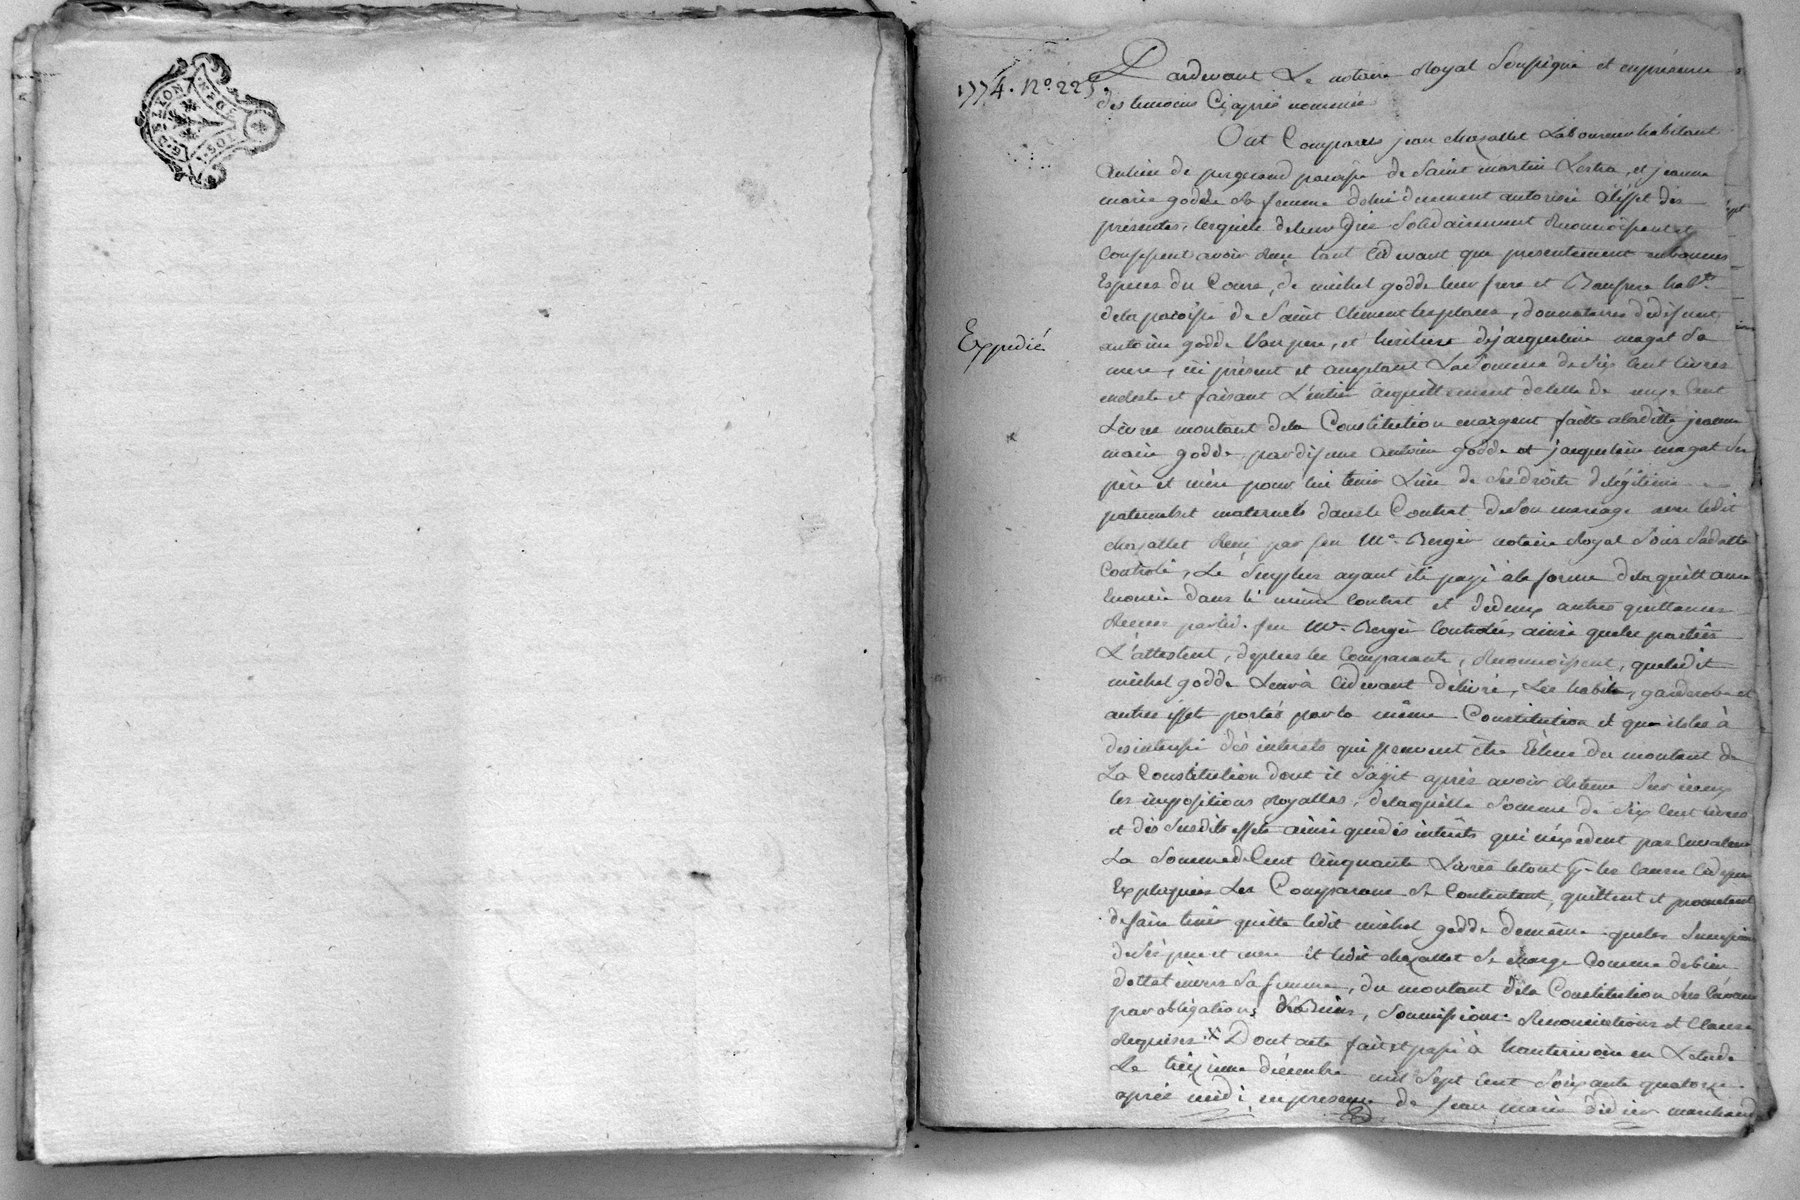 G. DE LYON
1774. N° 225.
Pardevant Le notaire Royal Soussigné et enpresence
des temoins Cy après nommés
Ont Comparus jean chazallet Laboureur habitant
de paroisse de Saint martin Lestra, et jeanne
marie godde Sa femme delui duement autorisée àl'effet des
présentes, lesquels deleur Gré Solidairement Reconnoissent et
Confessent avoir Reçu tant Cidevant que presentement enbonnes
Espèces du Cours, de michel godde leur frere et Beaufrere hab.t
dela paroisse de Saint Clement les places, donnataires dedefunt
Expedié
antoine godde Son pere, et heritiere dejacqueline magat Sa
mere, ici présent et acceptant LaSomme de Six Cent livres
endeste et faisant L'entier acquittement decelle de onze Cent
Livres montant dela Constitution enargent faitte aladitte jeanne
marie godde, pardefunt antoine godde et jacqueline magat Ses
père et mère pour lui tenir Lieu de Sesdroits delégitime
paternels et maternels dansle Contrat deSon mariage avec ledit
chazallet Reçu par feu Me Berger notaire Royal Sous Sadatte
Controlé, Le Surplus ayant été payé àla forme delaquittance
Enoncée dans le même Contrat et dedeux autres quittances
Reçues parled. feu Me Berger Controlées ainsi queles parties
L'attestent, deplus les Comparants, Reconnoissent, queledit
michel godde Leura Cidevant délivré, Les habits, garderobe et
autres effets portés parla même Constitution et qu'illes à
desinteressé des interets qui peuvent être Echus du montant de
La Constitution dont il S'agit après avoir Retenu Sur iceux
les impositions Royalles, delaquelle Somme de Six Cent livres
et des Susdits effets ainsi quedes intérêts qui n'excedent pas Envaleur
La Sommede Cent Cinquante Livres letout p.r les Causes Cidessus
Expliquées Les Comparans Se Contentent, quittent et promettent
defaire tenir quitte ledit michel godde demême queles Successions
deSes pere et mere et ledit chazallet Se charge Comme debien
dottal envers Sa femme, du montant dela Constitution
par obligations, Soumissions Renonciations et Clauses
Requises. X Dont acte fait et passé à hauterivoire en Letude
Le treizieme décembre mil Sept Cent Soixante quatorze
après midi, enpresence de Jean marie didier marchand